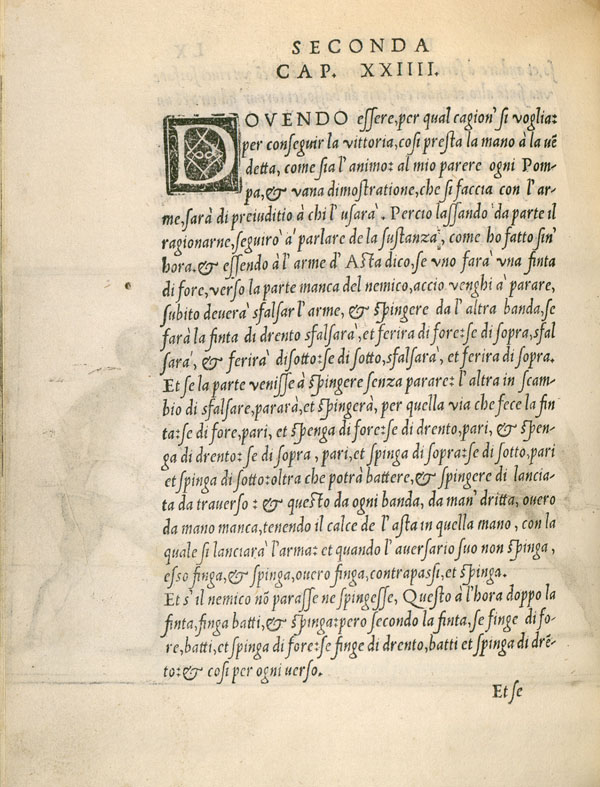 SECONDA
CAP. XXIIII.
DOVENDO eſſere, per qual cagion' ſi voglia:
per conſeguir la vittoria, coſi preſta la mano à la uẽ
detta, come ſia l' animo: al mio parere ogni Pom-
pa, & vana dimoſtratione, che ſi faccia con l' ar-
me, ſarà di preiuditio à chi l' uſarà. Percio laſſando da parte il
ragionarne, ſeguirò à parlare de la ſuſtanza, come ho fatto ſin'
hora. & eſſendo à l' arme d' Aſta dico, ſe vno farà vna finta
di fore, verſo la parte manca del nemico, accio venghi à parare,
ſubito deuerà sfalſar l' arme, & ſpingere da l' altra banda, ſe
farà la finta di drento sfalſarà, et ferira di fore: ſe di ſopra, sfal
ſarà, & ferirà di ſotto: ſe di ſotto, sfalſarà, et ferira di ſopra.
Et ſe la parte veniſſe à ſpingere ſenza parare: l' altra in ſcam
bio di sfalſare, pararà, et ſpingerà, per quella via che fece la fin
ta: ſe di fore, pari, et ſpenga di fore: ſe di drento, pari, & ſpen-
ga di drento: ſe di ſopra, pari, et ſpinga di ſopra: ſe di ſotto, pari
et ſpinga di ſotto: oltra che potrà battere, & ſpingere di lancia-
ta da trauerſo: & queſto da ogni banda, da man' dritta, ouero
da mano manca, tenendo il calce de l' aſta in quella mano, con la
quale ſi lanciarà l' arma: et quando l' auerſario ſuo non ſpinga,
eſſo finga, & ſpinga, ouero finga, contrapaſſi, et ſpinga.
Et s' il nemico nõ paraſſe ne ſpingeſſe, Queſto à l' hora doppo la
finta, finga batti, & ſpinga: pero ſecondo la finta, ſe finge di fo-
re, batti, et ſpinga di fore: ſe finge di drento, batti et ſpinga di drẽ-
to: & coſi per ogni verſo.
Et ſe